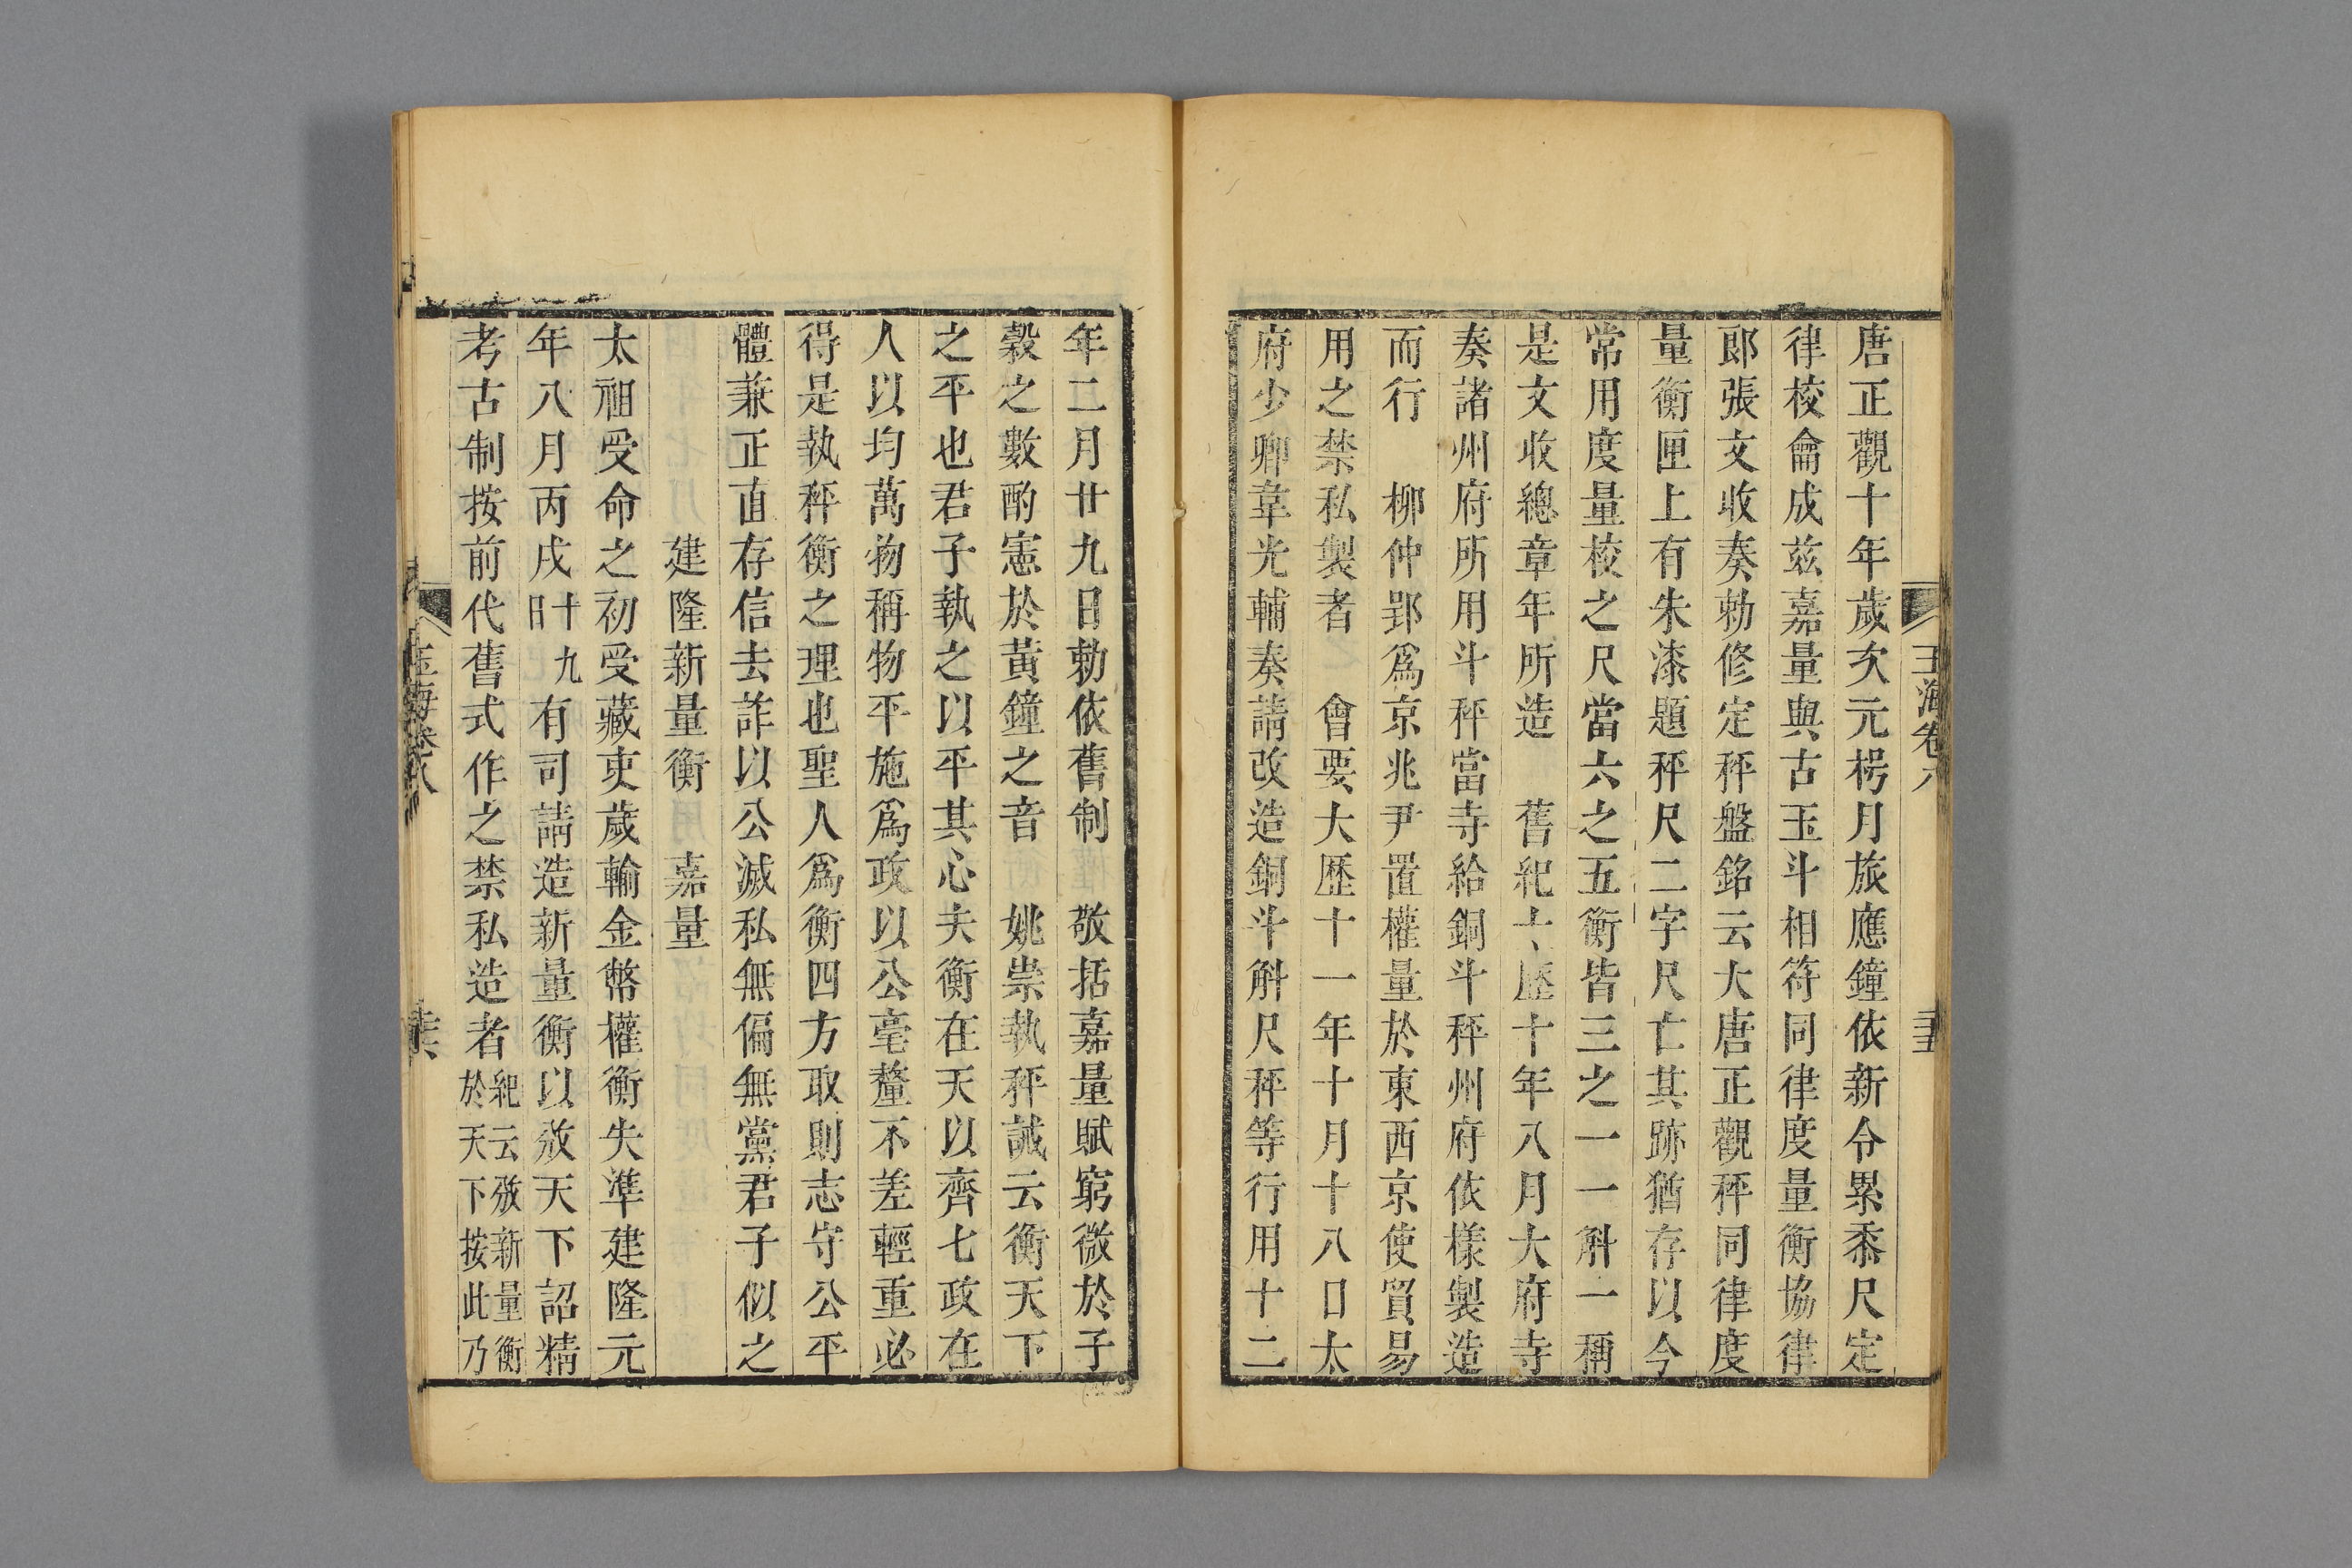 唐正觀十年歲次元枵月旅應鐘依新令累黍尺定
律校龠成茲嘉量與古玉斗相符同律度量衡協律
郎張文收奏勑修定秤盤銘云大唐正觀秤同律度
量衡匣上有朱漆題秤尺二字尺亡其跡猶存以今
常用度量校之尺當六之五衡皆三之一一斛一稱
是文收總章年所造　舊紀大歷十年八月大府寺
奏諸州府所用斗秤當寺給銅斗秤州府依樣製造
而行　柳仲郢爲京兆尹置權量於東西京使貿易
用之禁私製者　會要大歷十一年十月十八日太
府少卿韋光輔奏請改造銅斗斛尺秤等行用十二
玉海卷八
年二月廿九日勑依舊制　敬括嘉量賦窮微於子
穀之數酌憲於黃鐘之音　姚崇執秤誡云衡天下
之平也君子執之以平其心夫衡在天以齊七政在
人以均萬物稱物平施爲政以公毫釐不差輕重必
得是執秤衡之理也聖人爲衡四方取則志守公平
體兼正直存信去詐以公滅私無偏無黨君子似之
建隆新量衡　嘉量
太祖受命之初受藏吏歲輸金幣權衡失準建隆元
年八月丙戌十九日有司請造新量衡以攽天下詔精
考古制按前代舊式作之禁私造者紀云攽新量衡於天下按此乃
玉海卷八